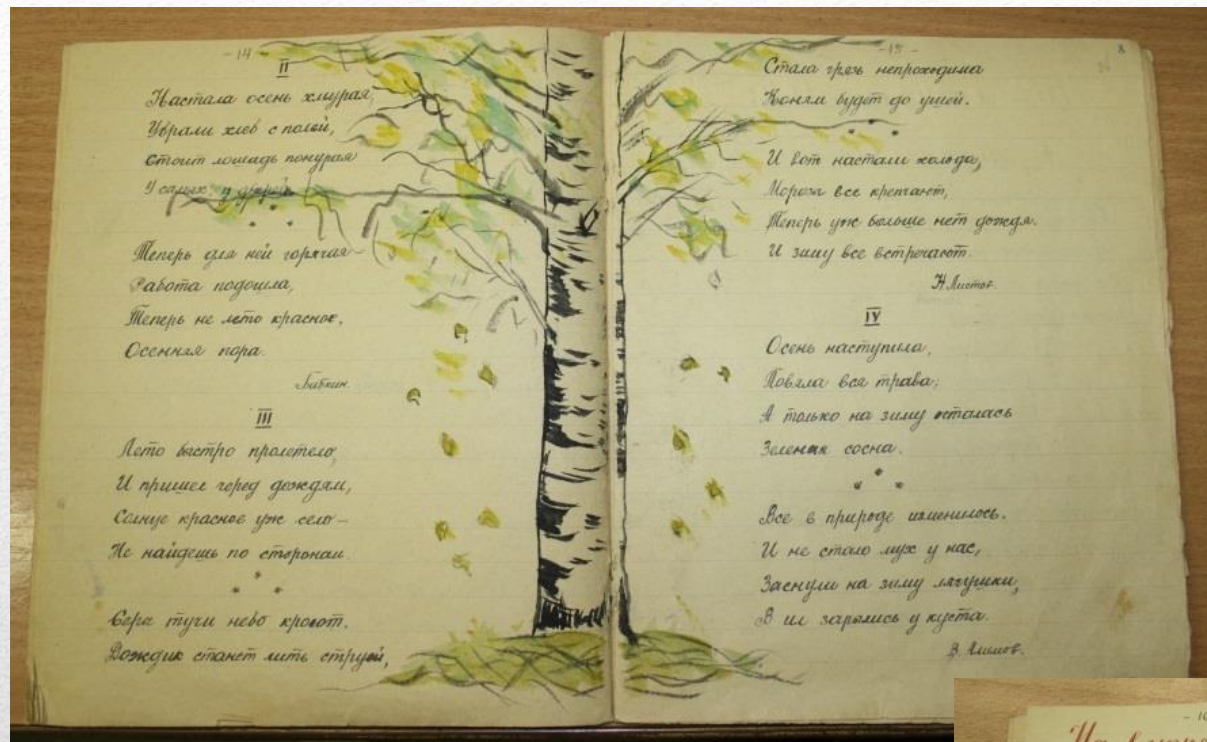 - 14 -
II
Настала осень хмурая,
Убрали хлеб с полей,
Стоит лошадь понурая
У самых, у дверей.
* * *
Теперь для ней горячая
Работа подошла,
Теперь не лето красное,
Осенняя пора.
Бабкин.
III
Лето быстро пролетело,
И пришел черед дождям,
Солнце красное уж село –
Не найдешь по сторонам.
* * *
Серы тучи небо кроют,
Дождик станет лить струей,
- 15 -
8
Стала грязь непроходима
Коням будет до ушей.
* * *
И вот настали холода,
Морозы все крепчают,
Теперь уж больше нет дождя.
И зиму все встречают.
Н. Листов.
IV
Осень наступила,
Повяла вся трава;
А только на зиму осталась
Зеленая сосна.
* * *
Все в природе изменилось.
И не стало мух у нас,
Заснули на зиму лягушки,
В ил зарылись у куста.
В.
- 10